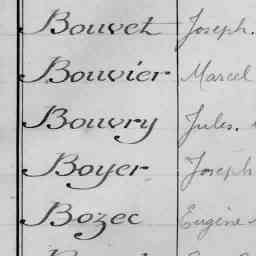 Bouvet Joseph.
Bouvier Marcel
Bouvry Jules.
Boyer Joseph
Bozec Eugène